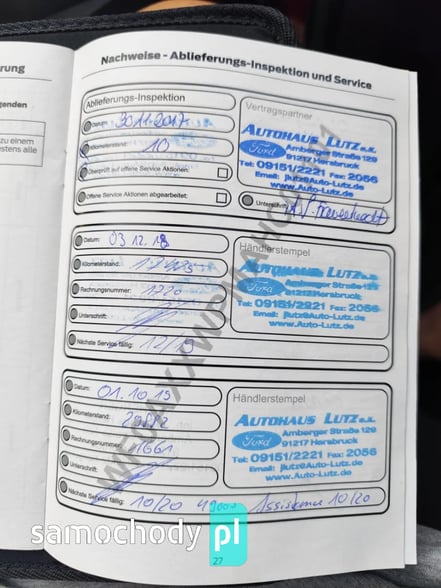 rung
genden
zu einem
estens alle
Nachweise - Ablieferungs-Inspektion und Service
Ablieferungs-Inspektion
Datum: 30.11.2017
Kilometerstand: 10
Überprüft auf offene Service Aktionen:
Offene Service Aktionen abgearbeitet:
Vertragspartner
AUTOHAUS LUTZ e.K.
Ford
Amberger Straße 129
91217 Hersbruck
Tel: 09151/2221 Fax: 2056
Email: jlutz@Auto-Lutz.de
www.Auto-Lutz.de
Unterschrift:
Datum: 03.12.18
Kilometerstand:
Rechnungsnummer: 1220
Unterschrift:
Nächste Service fällig: 12/19
Händlerstempel
AUTOHAUS LUTZ e.K.
Ford
Amberger Straße 129
91217 Hersbruck
Tel: 09151/2221 Fax: 2056
Email: jlutz@Auto-Lutz.de
www.Auto-Lutz.de
Datum: 01.10.19
Kilometerstand:
Rechnungsnummer: 1661
Unterschrift:
Nächste Service fällig: 10/20 Assistance 10/20
Händlerstempel
AUTOHAUS LUTZ e.K.
Ford
Amberger Straße 129
91217 Hersbruck
Tel: 09151/2221 Fax: 2056
Email: jlutz@Auto-Lutz.de
www.Auto-Lutz.de
samochody pl
27